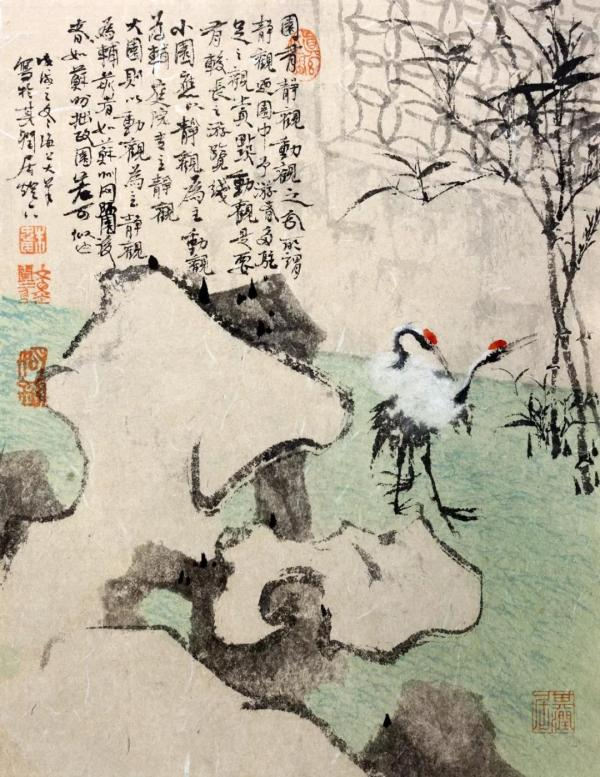 園有靜觀動觀之分所謂
靜觀迺園中予游者多駐
足之觀賞點動觀是要
有較長之游覽線
小園應以靜觀為主動觀
為輔庭院專主靜觀
大園則以動觀為主靜觀
為輔前者如蘇州网師園後
者如蘇州拙政園差可似也
戊戌之冬海上大
寫於真潤居燈下